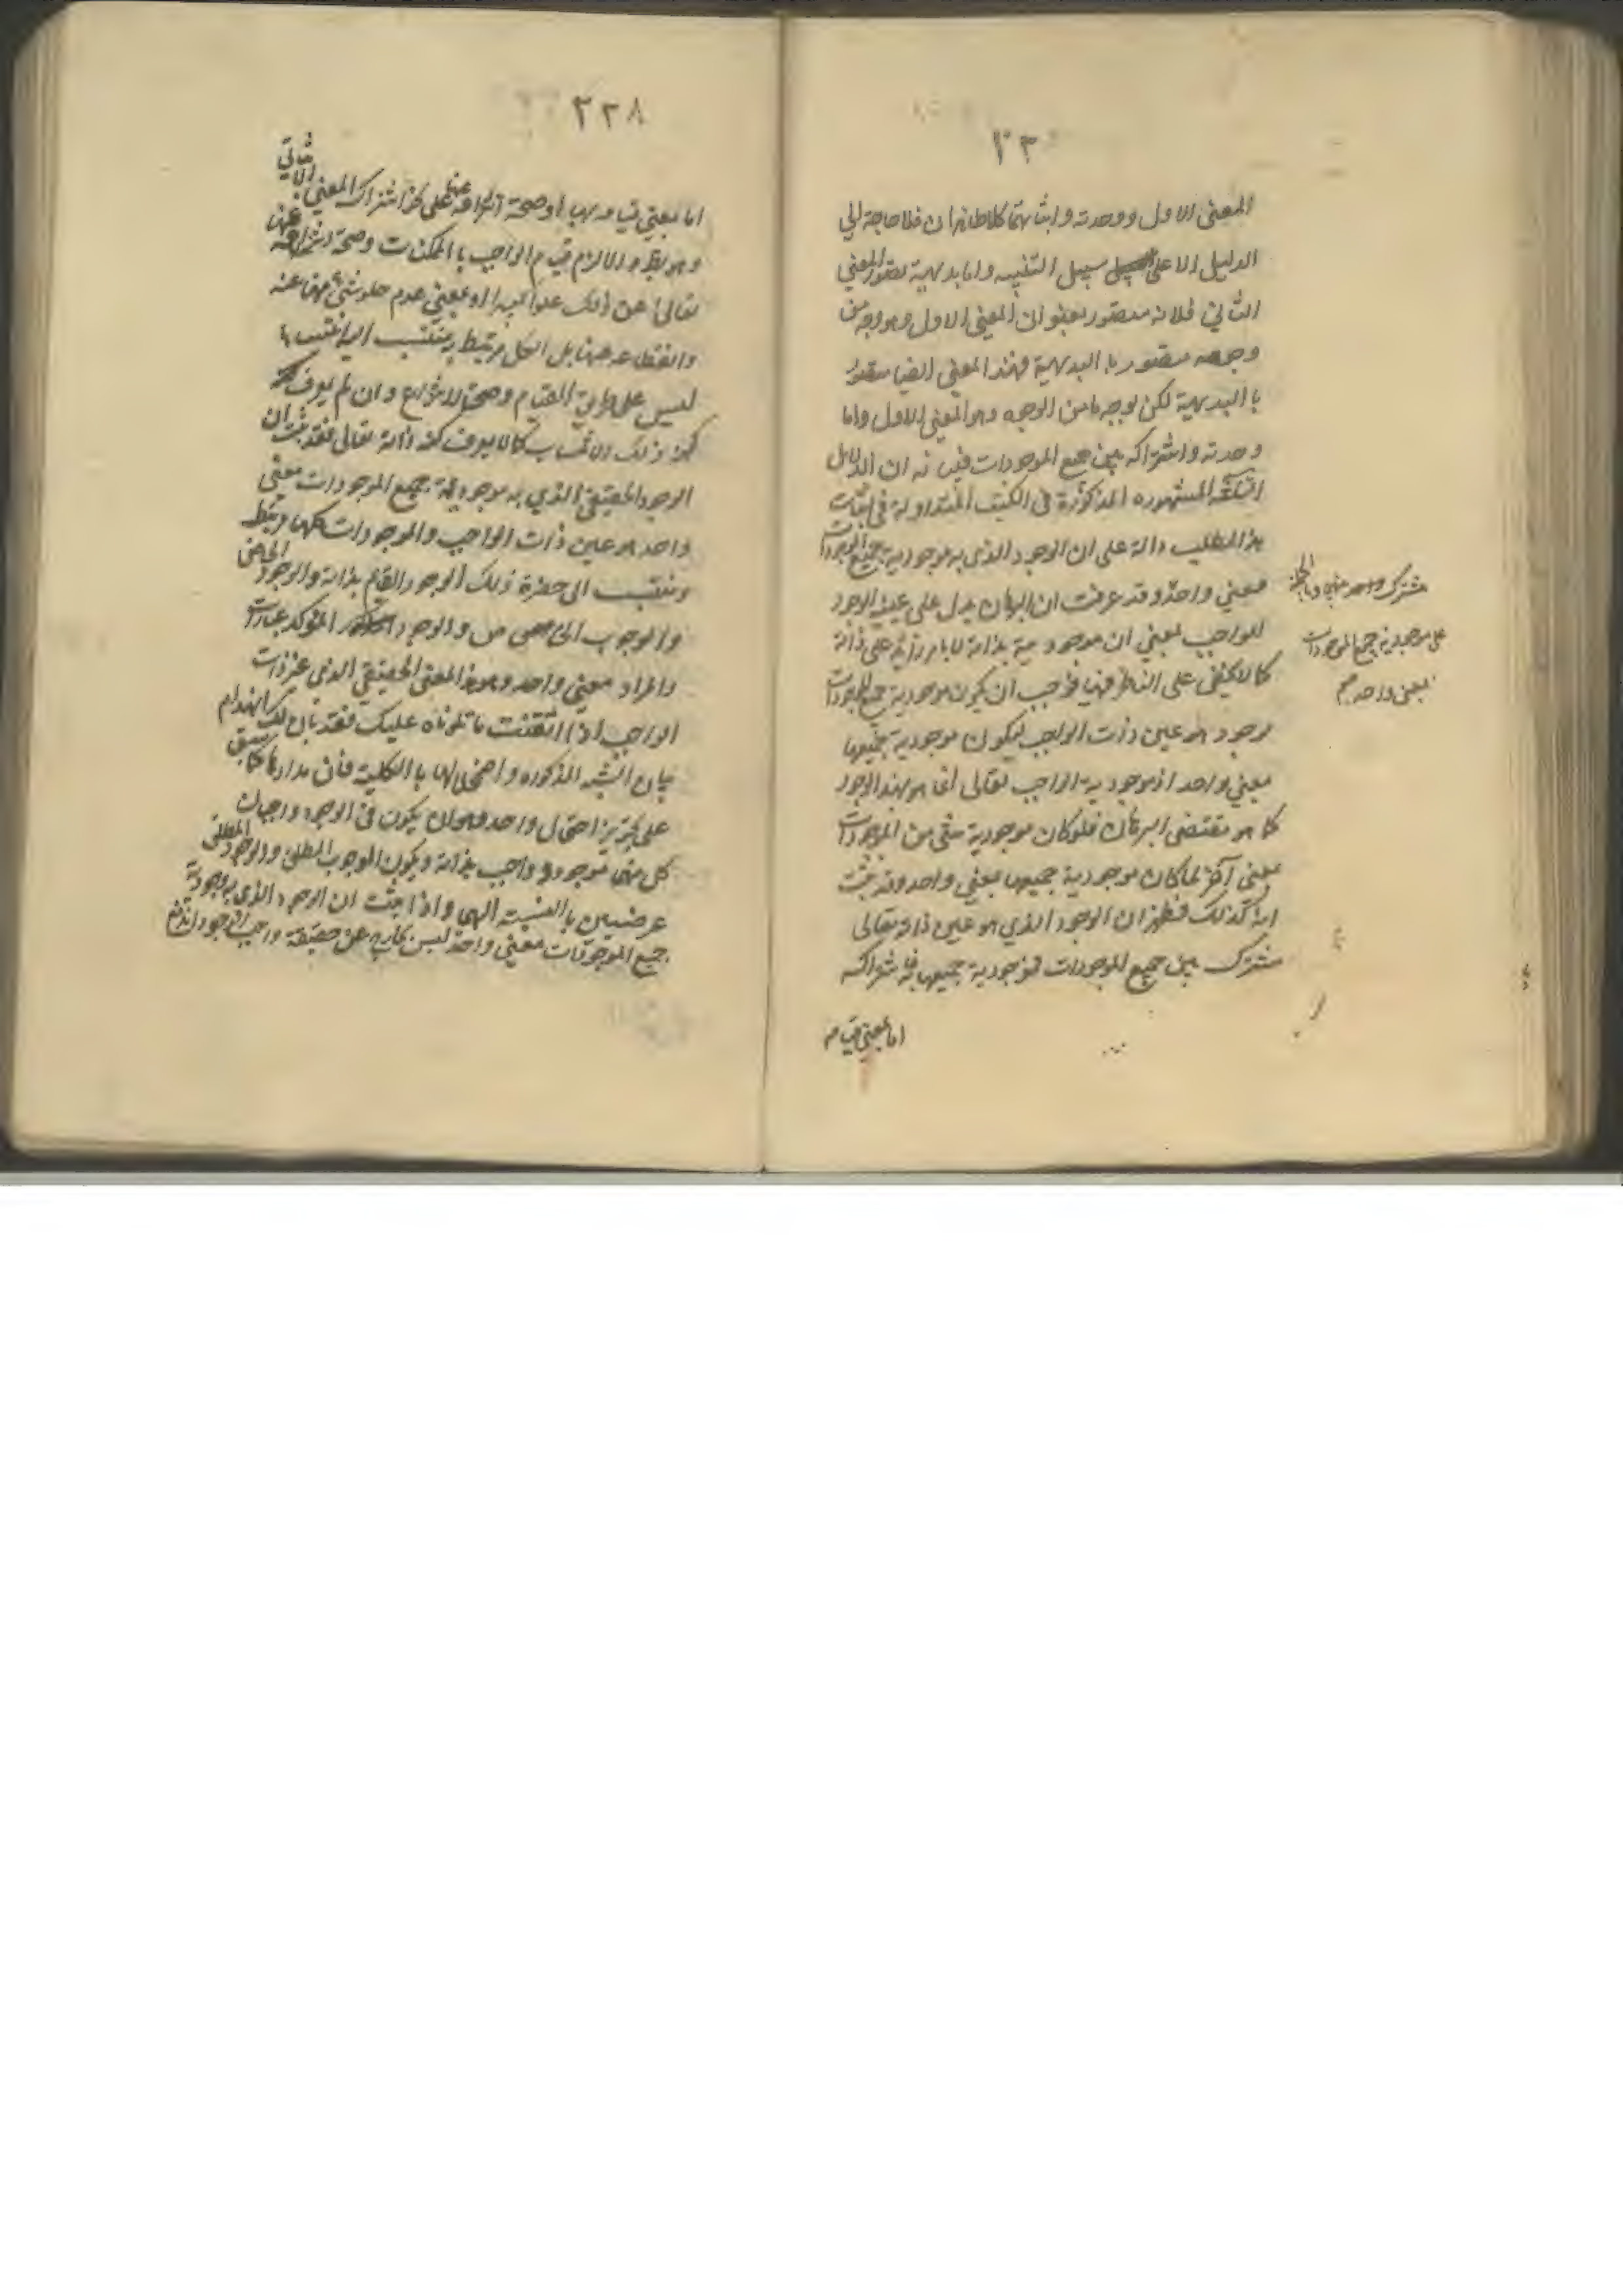 المعنى الاول ووحدته واثباتهما كلاهما ظاهران فلا حاجة الى
الدليل الا على سبيل التنبيه واما بديهية تصور المعنى
الثانى فلانه متصور بعنوان المعنى الاول وهو وجه من
وجوهه متصور با البديهية فهذا المعنى ايضا متصور
با البديهية لكن بوجه ما من الوجوه وهو المعنى الاول واما
وحدته واشتراكه بين جميع الموجودات فبيانه ان الدلائل
الثلثة المشهوره المذكورة فى الكتب المتداولة فى اثبات
هذا المطلب دالة على ان الوجود الذى به موجودية جميع الموجودات
معنى واحد وقد عرفت ان البرهان يدل على عينية الوجود
للواجب بمعنى ان موجودية بذاته لا بامر زائد على ذاته
كما لا يخفى على الناظر فيها فوجب ان يكون موجودية جميع الموجودات
بوجود هو عين ذات الواجب ليكون موجودية جميعها
بمعنى واحد اذ موجودية الواجب تعالى انما هو بهذا الوجود
كما هو مقتضى البرهان فلو كان موجودية شئ من الموجودات
بمعنى آخر لما كان موجودية جميعها بمعنى واحد وقد ثبت
انه كذلك فظهر ان الوجود الذي هو عين ذاته تعالى
مشترك بين جميع الموجودات فموجودية جميعها به فاشتراكه
اما بمعنى قيامه
مشترك
على موجودية جميع الموجودات
بمعنى واحد صح
٢٢٨
اما بمعنى قيامه بها او صحة انتزاعه عنها على نحو اشتراك المعنى الثانى
وهو بط والا لزم قيام الواجب با الممكنات وصحة انتزاعه عنها
تعالى عن ذلك علوا كبيرا او بمعنى عدم خلو شئ منها عنه
وانقطاعه عنها بل الكل مرتبط به منتسب اليه انتسابا
ليس على طريق القيام وصحة الانتزاع وان لم يعرف
كنه ذلك الانتساب كما لا يعرف كنه ذاته تعالى فقد ثبت ان
الوجود الحقيقى الذي به موجودية جميع الموجودات معنى
واحد هو عين ذات الواجب والموجودات كلها مرتبط
ومنتسب الى حضرة ذلك الوجود القائم بذاته والوجود الخاص
والوجوب الخاص والوجود المتأكد عبارات
والمراد معنى واحد وهو هذا المعنى الحقيقي الذى عين ذات
الواجب اذا اتقنت ما تلوناه عليك فقد بان لك انهدام
بنيان الشبه المذكوره واضمحلالها با الكلية فان مدارها كما سبق
على تجويز احتمال واحد وهو ان يكون فى الوجود واجبان
كل منهما موجود واجب بذاته ويكون الوجوب المطلق والوجود المطلق
عرضيين با النسبة اليهما واذا ثبت ان الوجود الذى به موجودية
جميع الموجودات معنى واحد ليس بخارج عن حقيقة واجب الوجود